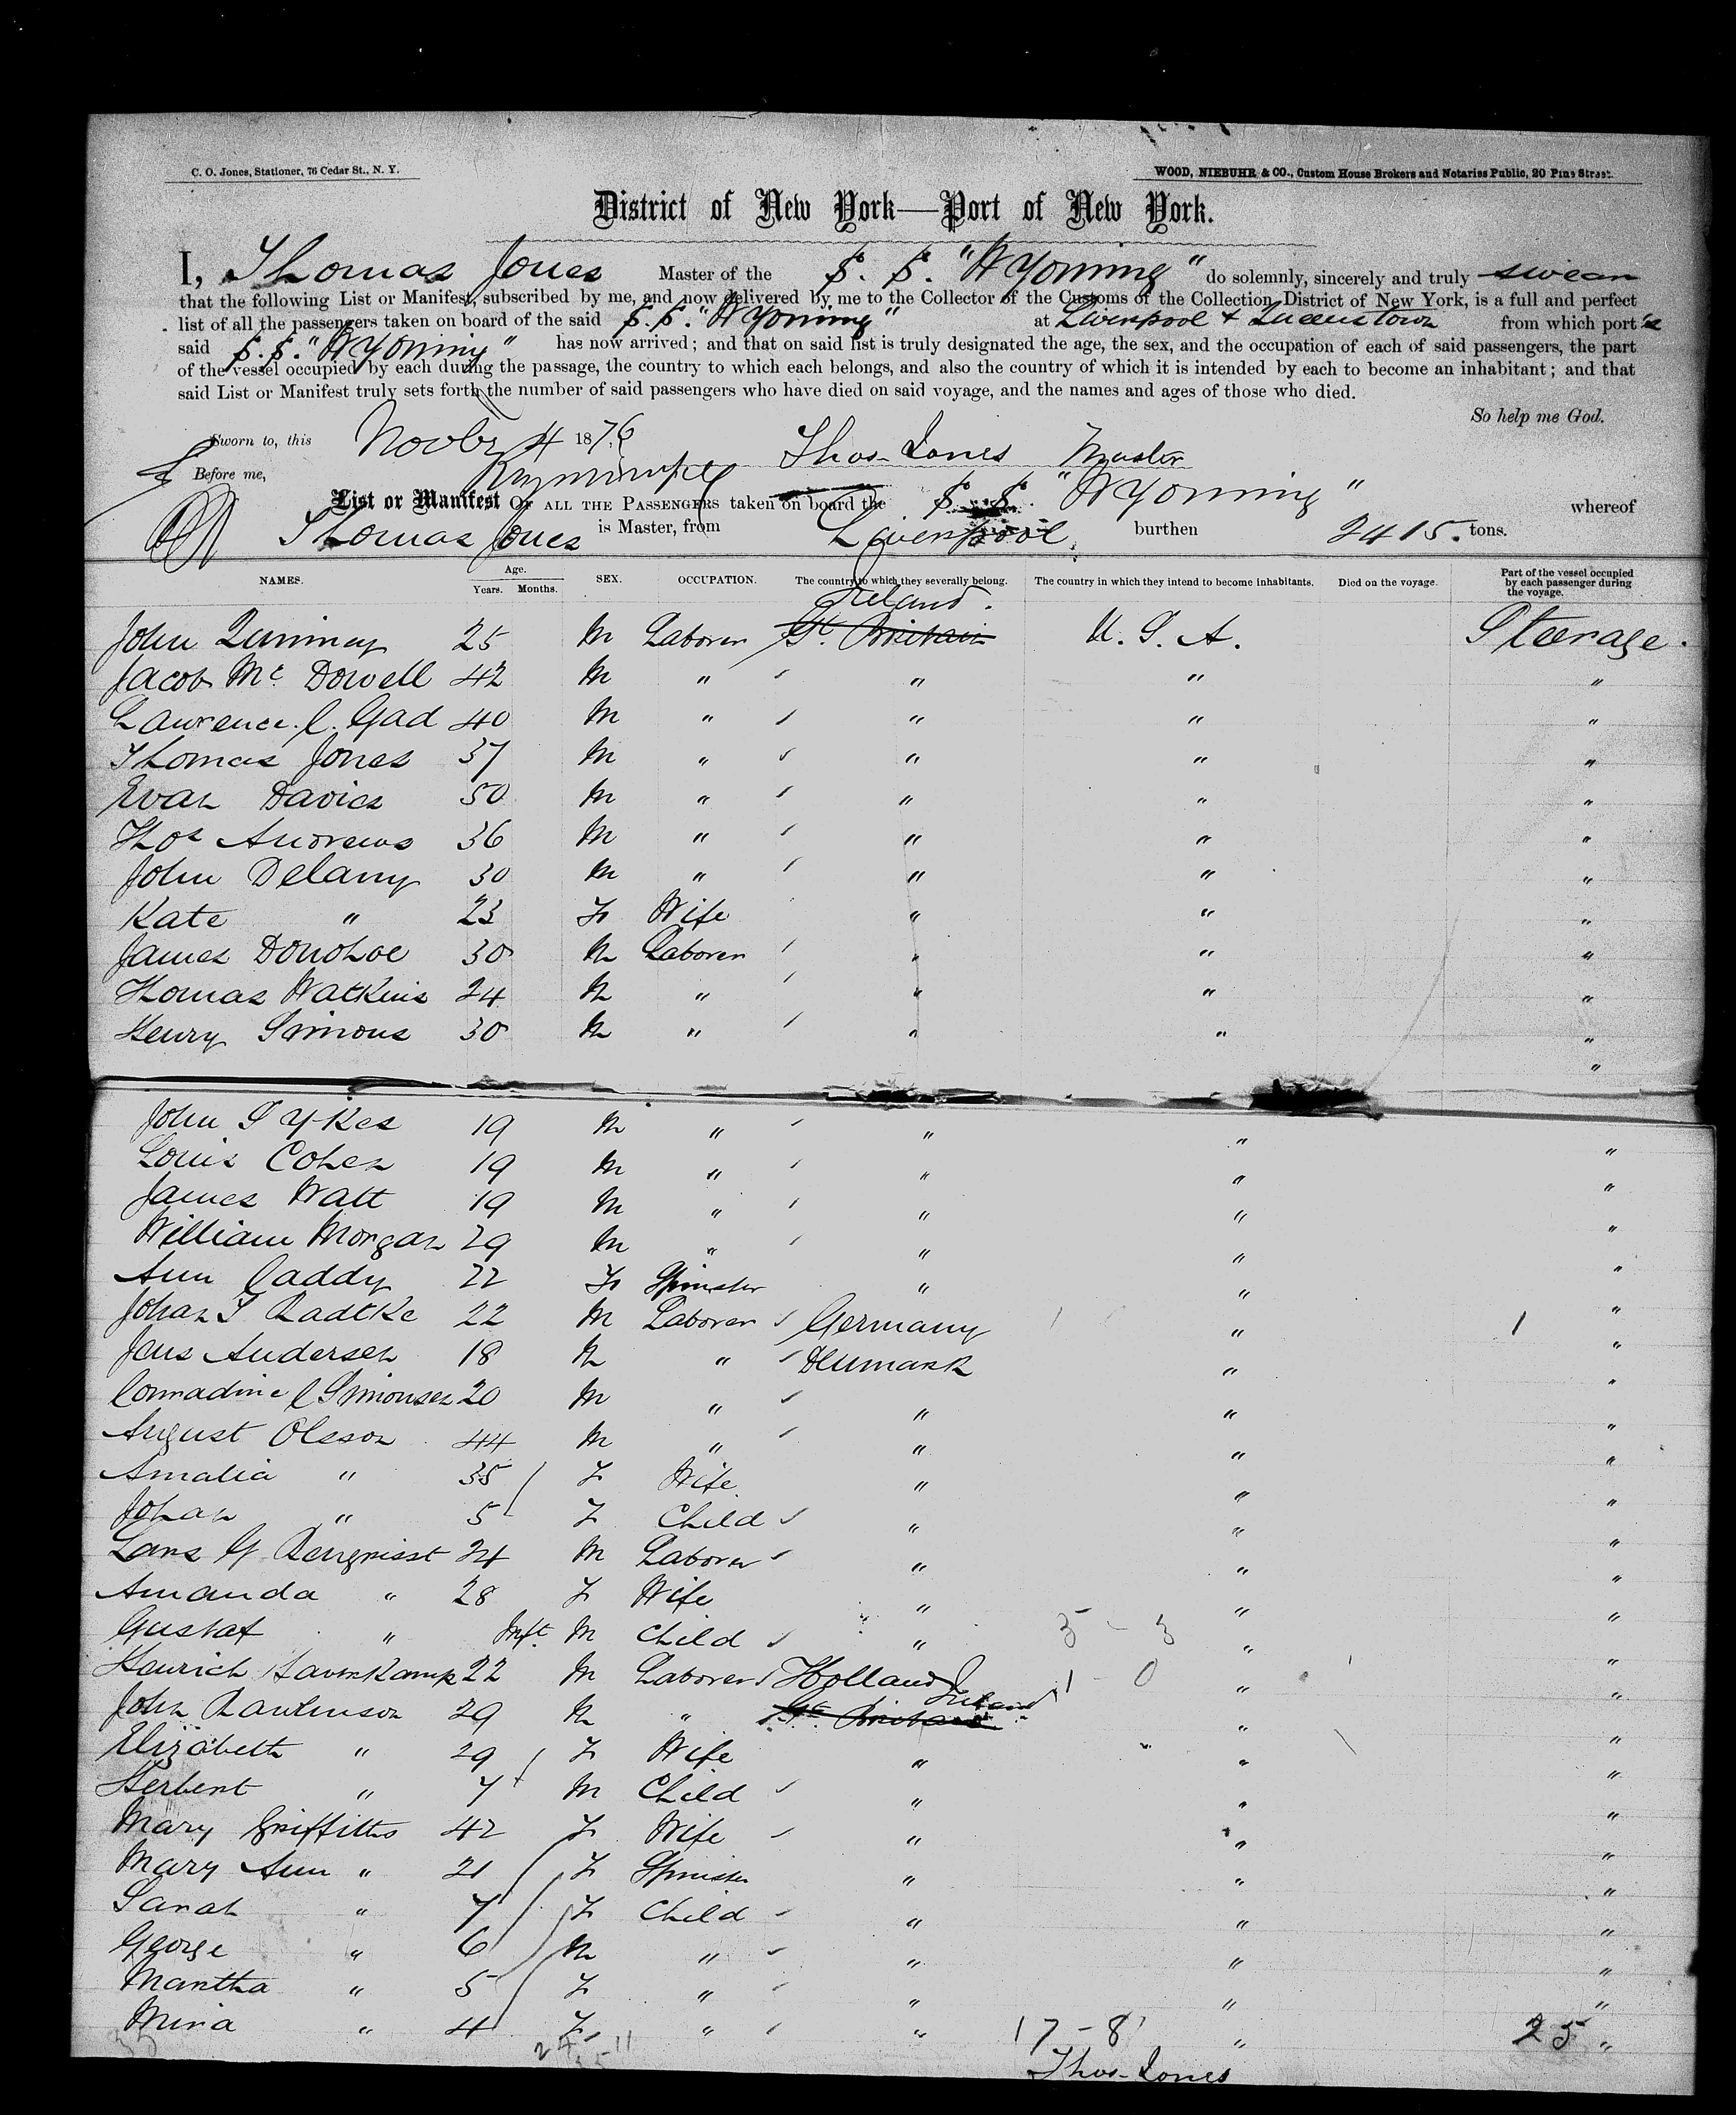 C. O. Jones, Stationer, 76 Cedar St., N. Y.
WOOD, NIEBUHR & CO., Custom House Brokers and Notaries Public, 20 Pine Street.
District of New York—Port of New York.
I, Thomas Jones Master of the S. S. "Wyoming" do solemnly, sincerely and truly swear
that the following List or Manifest, subscribed by me, and now delivered by me to the Collector of the Customs of the Collection District of New York, is a full and perfect
list of all the passengers taken on board of the said S. S. "Wyoming" at Liverpool & Queenstown from which port
said S. S. "Wyoming" has now arrived; and that on said list is truly designated the age, the sex, and the occupation of each of said passengers, the part
of the vessel occupied by each during the passage, the country to which each belongs, and also the country of which it is intended by each to become an inhabitant; and that
said List or Manifest truly sets forth the number of said passengers who have died on said voyage, and the names and ages of those who died.
So help me God.
Sworn to, this Novbr 4 1876 Thos Jones Master
Before me,
List or Manifest OF ALL THE PASSENGERS taken on board the S. S. "Wyoming" whereof
Thomas Jones is Master, from Liverpool burthen 2415. tons.
NAMES. Age. Years. Months. SEX. OCCUPATION. The country to which they severally belong. The country in which they intend to become inhabitants. Died on the voyage. Part of the vessel occupied by each passenger during the voyage.
Ireland.
John 25 M Laborer Gt. Britain U. S. A. Steerage.
Jacob Mc Dowell 42 M " " " "
Lawrence C. Gad 40 M " " " "
Thomas Jones 37 M " " " "
Evan Davies 50 M " " " "
Thos Andrews 36 M " " " "
John Delany 30 M " " " "
Kate " 23 F Wife " " "
James Donohoe 30 M Laborer " " "
Thomas Watkins 24 M " " " "
Henry Simons 30 M " " " "
"
John Sykes 19 M " " " "
Louis Cohen 19 M " " " "
James Watt 19 M " " " "
William Morgan 29 M " " " "
Ann Caddy 22 F Spinster " " "
Johan S Radtke 22 M Laborer Germany " 1 "
Jens Andersen 18 M " Denmark " "
Conradine C Simonsen 20 M " " " "
August Olsson 44 M " " " "
Amalia " 35 F Wife " " "
Johan " 5 F Child " " "
Lars G 24 M Laborer " " "
Amanda " 28 F Wife " " "
Gustaf " Inft. M Child " 3 - 3 " "
Heinrich Havenkamp 22 M Laborer Holland 1 - 0 " "
John Rawlinson 29 M " Gt. Britain Ireland " "
Elizabeth " 29 F Wife " " "
Herbert " 7 M Child " " "
Mary Griffiths 42 F Wife " " "
Mary Ann " 21 F Spinster " " "
Sarah " 7 F Child " " "
George " 6 M " " " "
Martha " 5 F " " " "
Mina " 4 F " " 17 - 8 " 25 "
35 24 - 11
Thos Jones